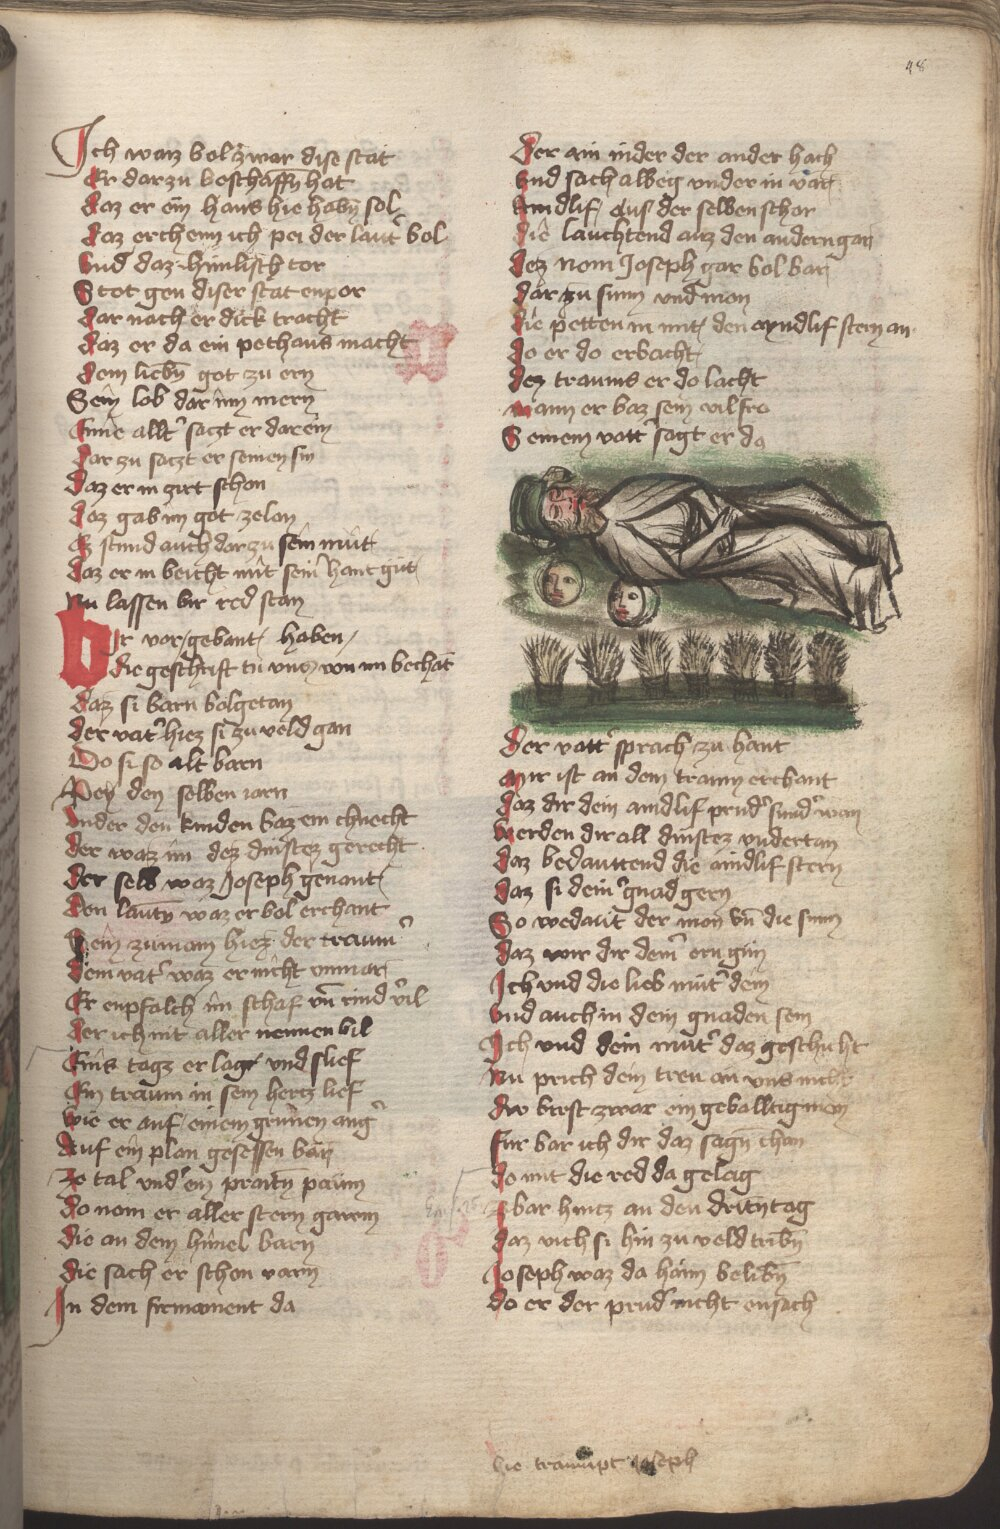 48
Ich waz bol zwar dise stat
Er dar zu beschaffn̄ hat
daz er ein haus hie habn̄ sol
daz erchenn ich pei der laut̉ bol
vnd daz himlisch tor
Stot gen diser stat enpor
dar nach er dick tracht
daz er da ein pethaus macht
dem liebn̄ got zu ern
Sein lob dar inn mern
Inne allt̉ saczt er darein
dar zu saczt er seinen sin
daz er in zirt schon
daz gab im got ze lon
Ez stund auch dar zu sein můt
daz er in beicht mit sein̉ hant gůt
Nu lassen bir red stan
bir vor gebant haben
die geschrift tů vns von im bechāt
daz si barn bolgetan
der vat̉ hiez si zu veld gan
Do si so alt barn
Pey den selben iarn
vnder den kinden baz ein chnecht
der waz im dez dinstez gerecht
der selb waz Joseph genant
den lautn̄ waz er bol erchant
Sein zunam hiez der traum̉
dem vat̉ waz er nicht vnmar
Er enpfalch im schaf vn̄ rind v̉il
der ich nit aller nennen bil
Eins tags er lag vnd slief
Ein traum in sein hercz lief
bie er auf einem grünen ang̉
Auf ein plan gesessen bar
Ze tal vnd ein praitn̄ paum
do nom er aller stern gaum
die an dem himel barn
die sach er schon varn
In dem firmament da
Der ain nider der ander hach
vnd sach albeg vnder in var
Aindlif aus der selben schar
die lauchtend auz den andern gar
dez nom Joseph gar bol bar
dar zu sunn vnd mon
die petten in mit den ayndlif stern an
do er do erbacht
dez traums er do lacht
wann er baz sein vil fro
Seinem vatt̉ sagt er do
der vatt̉ sprach zu hant
mir ist an dem traum erchant
daz dir dein aindlif prud̉ sund̉ wan
werden dir all dinstez vndertan
daz bedauttend die aindlif stern
daz si dein̉ gnad gern
So wedaut der mon vn̄ die sunn
daz wir dir dein̉ ern gun
Ich vnd die lieb mut̉ dein
vnd auch in dem gnaden sein
Ich vnd dein mut̉ daz geschicht
Nu prich dein treu an vns nicht
dv birst zwar ein geballtig man
fur bar ich dir daz sagn̄ chan
do mit die red da gelag
bar hincz an den dritn̄ tag
daz vich si hin zu veld tribn̄
Joseph waz da haim belibn̄
do er der prud̉ nicht ensach
hie traumpt ioseph